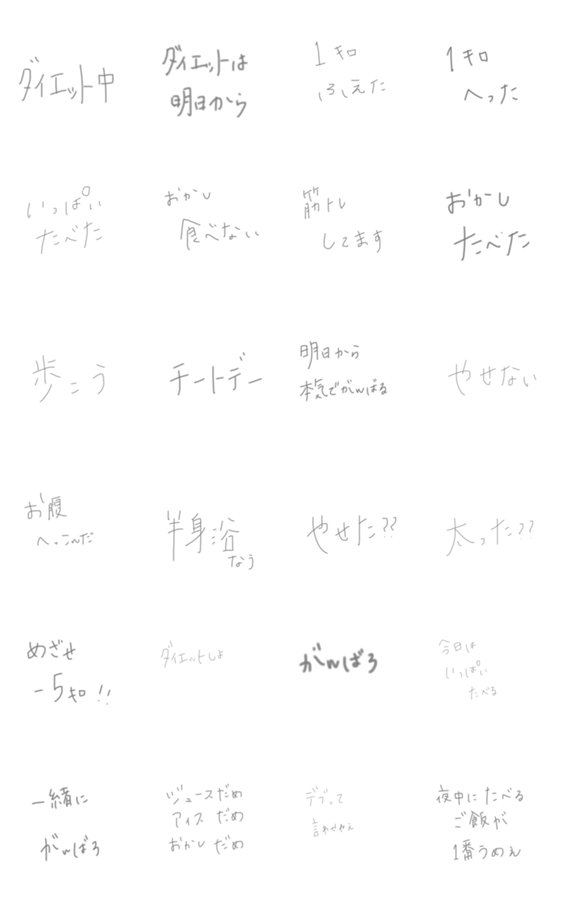 ダイエット中
ダイエットは
明日から
1キロ
ふえた
1キロ
へった
いっぱい
たべた
おかし
食べない
筋トレ
してます
おかし
たべた
歩こう
チートデー
明日から
本気でがんばる
やせない
お腹
へっこんだ
半身浴
なう
やせた??
太った??
めざせ
-5キロ!!
ダイエットしよ
がんばろ
今日は
いっぱい
たべる
一緒に
がんばろ
ジュースだめ
アイスだめ
おかしだめ
デブって
夜中にたべる
ご飯が
1番うめぇ